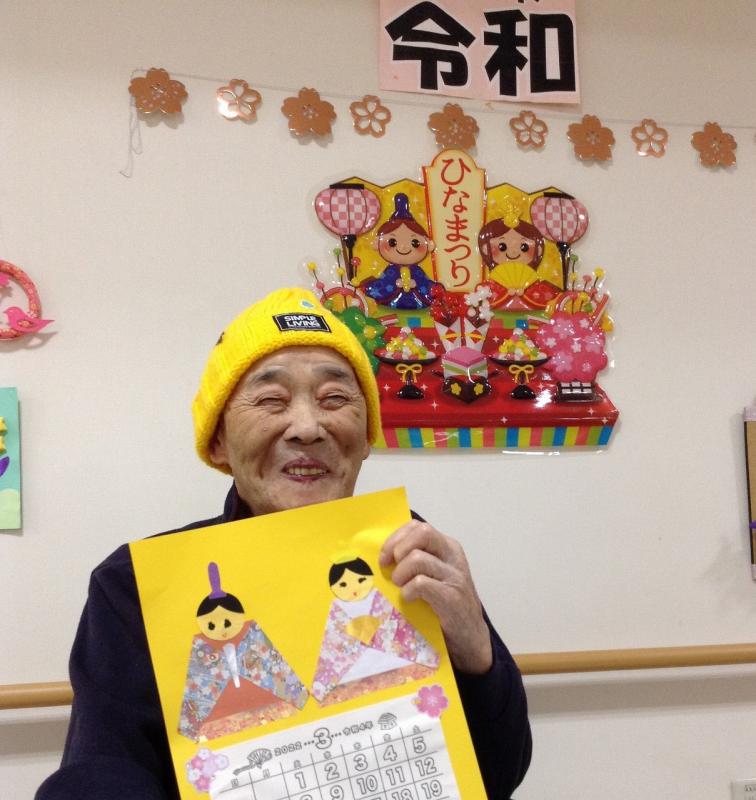 令和
ひなまつり
SIMPLE
LIVING
2022…3…令和4年
日 月 火 水 木 金 土
1 2 3 4 5
8 9 10 11 12
17 18 19